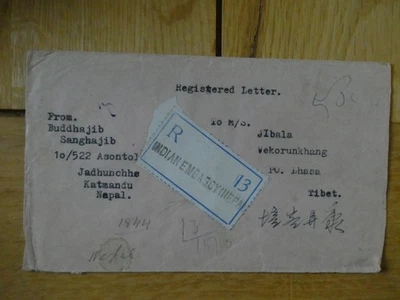 Registered Letter.
From.
Buddhajib
Sanghajib
10/522 Asontol
Jadhunchhe
Katmandu
Nepal.
To M/s.
JIbala
Wekorunkhang
PO. Lhasa
Tibet.
R
INDIAN EMBASSY (NEPAL
13
1844
Nepal